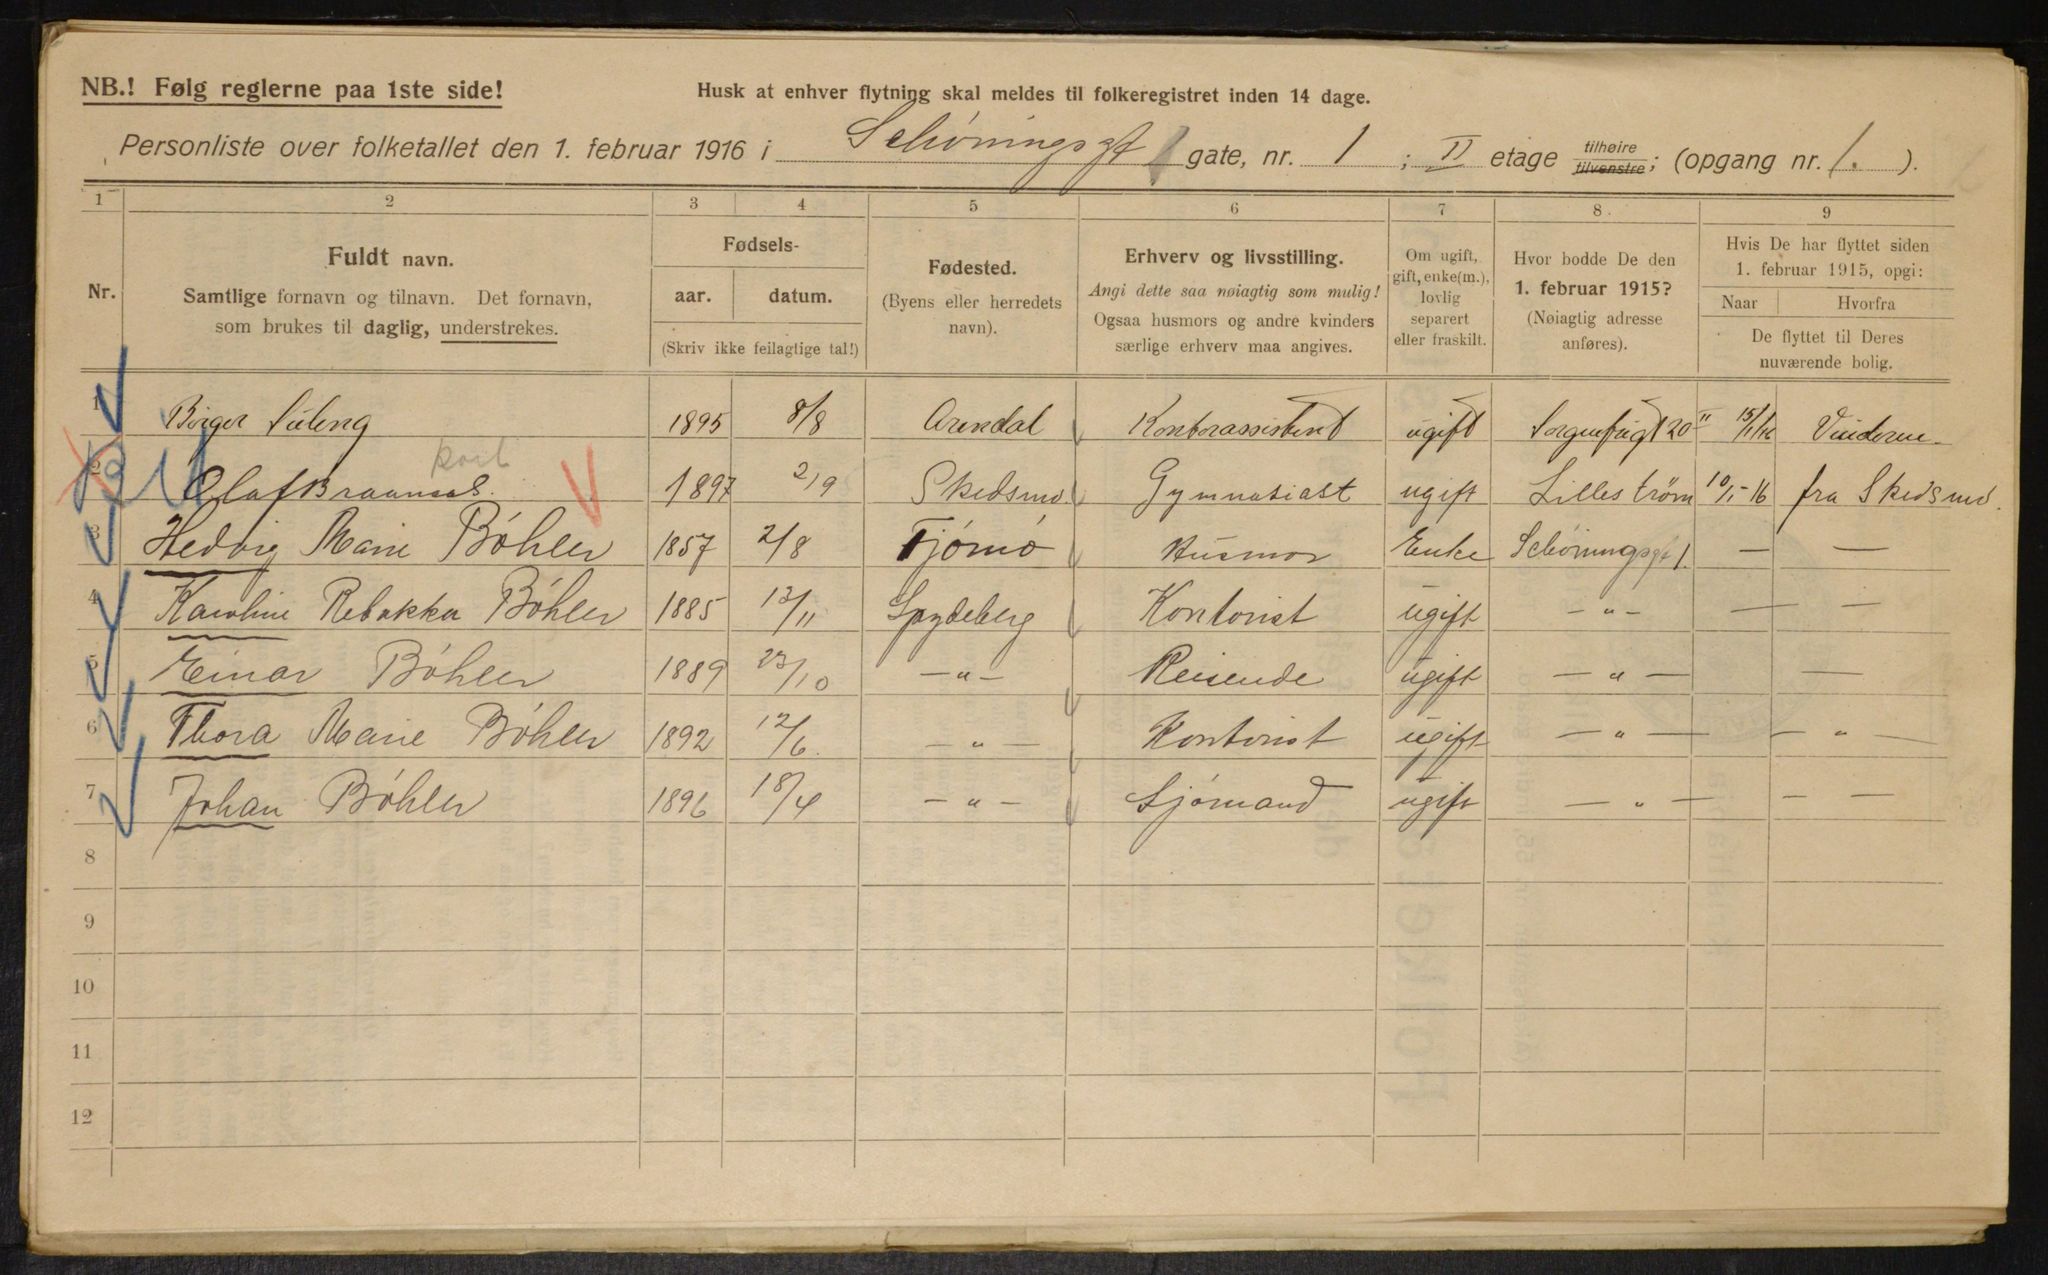 NB.! Følg reglerne paa 1ste side!
Husk at enhver flytning skal meldes til folkeregistret inden 14 dage.
Personliste over folketallet den 1. februar 1916 i Schøningsgt gate, nr. 1 ; II etage tilhøire tilvenstre; (opgang nr. 1. ).
1 2 3 4 5 6 7 8. 9
Nr.
Fuldt navn.
Samtlige fornavn og tilnavn. Det fornavn,
som brukes til daglig, understrekes.
Fødsels-
aar. datum.
(Skriv ikke feilagtige tal!)
Fødested.
(Byens eller herredets
navn).
Erhverv og livsstilling.
Angi dette saa nøiagtig som mulig!
Ogsaa husmors og andre kvinders
særlige erhverv maa angives.
Om ugift,
gift, enke(m.),
lovlig
separert
eller fraskilt.
Hvor bodde De den
1. februar 1915?
(Nøiagtig adresse
anføres).
Hvis De har flyttet siden
1. februar 1915, opgi:
Naar Hvorfra
De flyttet til Deres
nuværende bolig.
1 Birger 1895 8/8 Arendal Kontorassistent ugift 15/1/16 Vinderen
kort
2 Olaf 1897 2/9 Skedsmo Gymnasiast ugift Lillestrøm 10/1-16 fra Skedsmo.
3 Hedvig Marie Bøhler 1857 2/8 Tjømø Husmor Enke Schøningsgt 1. — —
4 Karoline Rebekka Bøhler 1885 13/11 Spydeberg Kontorist ugift — " — — —
5 Einar Bøhler 1889 23/10 — " — Reisende ugift — " — —
6 Thora Marie Bøhler 1892 12/6. — " — Kontorist ugift — " — — " —
7 Johan Bøhler 1896 18/4 — " — Sjømand ugift — " — — —
8
9
10
11
12